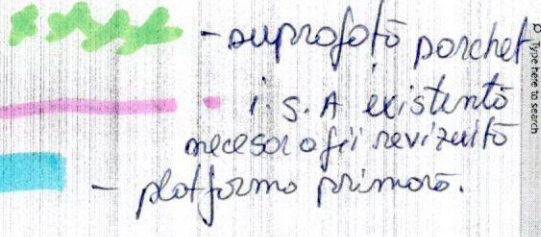 - suprafață parchet
- i.S.A existentă
necesar a fi revizuită
- platformă primară.
Type here to search